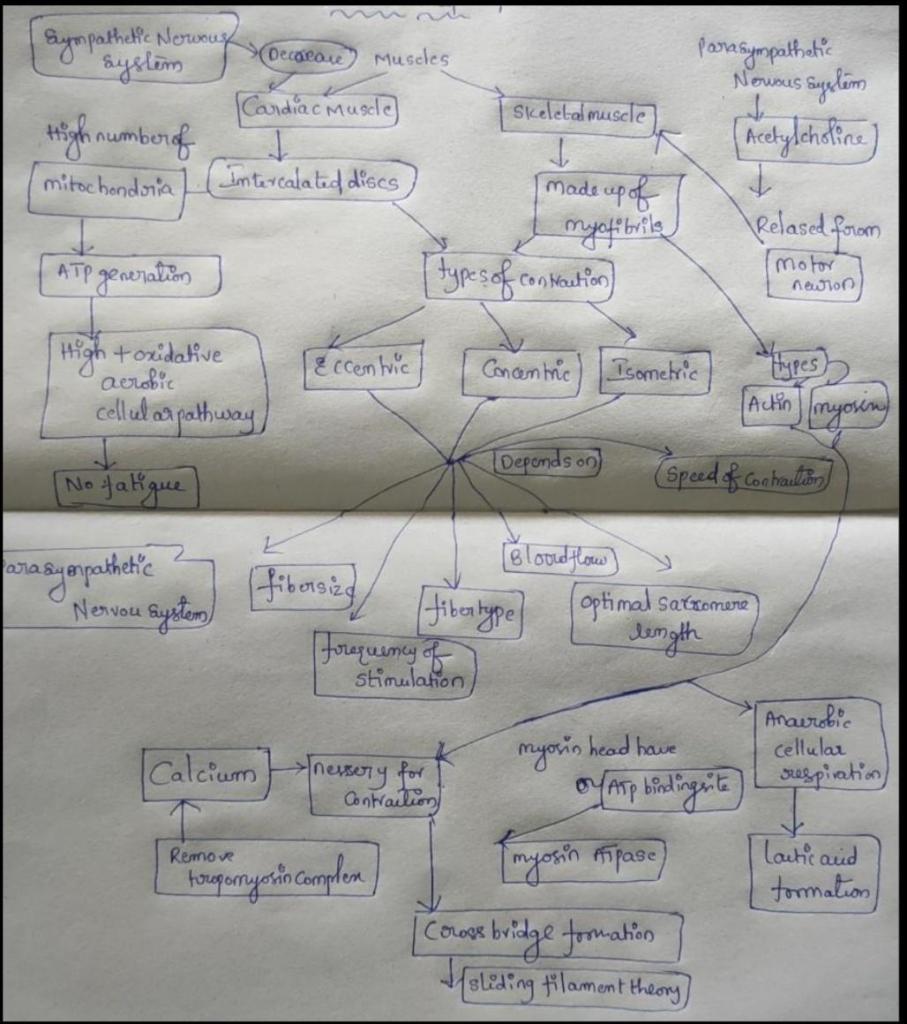 Sympathetic Nervous
System
Decrease
Muscles
Parasympathetic
Nervous System
Cardiac Muscle
Skeletal muscle
Acetylcholine
High number of
mitochondria
Intercalated discs
made up of
myofibrils
Relased from
motor
neuron
ATP generation
types of contraction
High + oxidative
aerobic
cellular pathway
Eccentric
Concentric
Isometric
types
Actin
myosin
No fatigue
Depends on
Speed of contraction
arasympathetic
Nervou System
fibersize
Bloodflow
fibertype
optimal sarromere
length
frequency of
stimulation
Anaerobic
cellular
respiration
Calcium
nessery for
Contraction
myosin head have
or ATP binding site
Remove
tropomyosin Complex
myosin ATpase
lactic acid
formation
Cross bridge formation
sliding filament theory